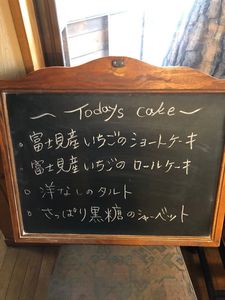 ～ Todays cake ～
○ 富士見産いちごのショートケーキ
富士見産いちごの ロールケーキ
○ 洋なしのタルト
○ さっぱり黒糖のシャーベット